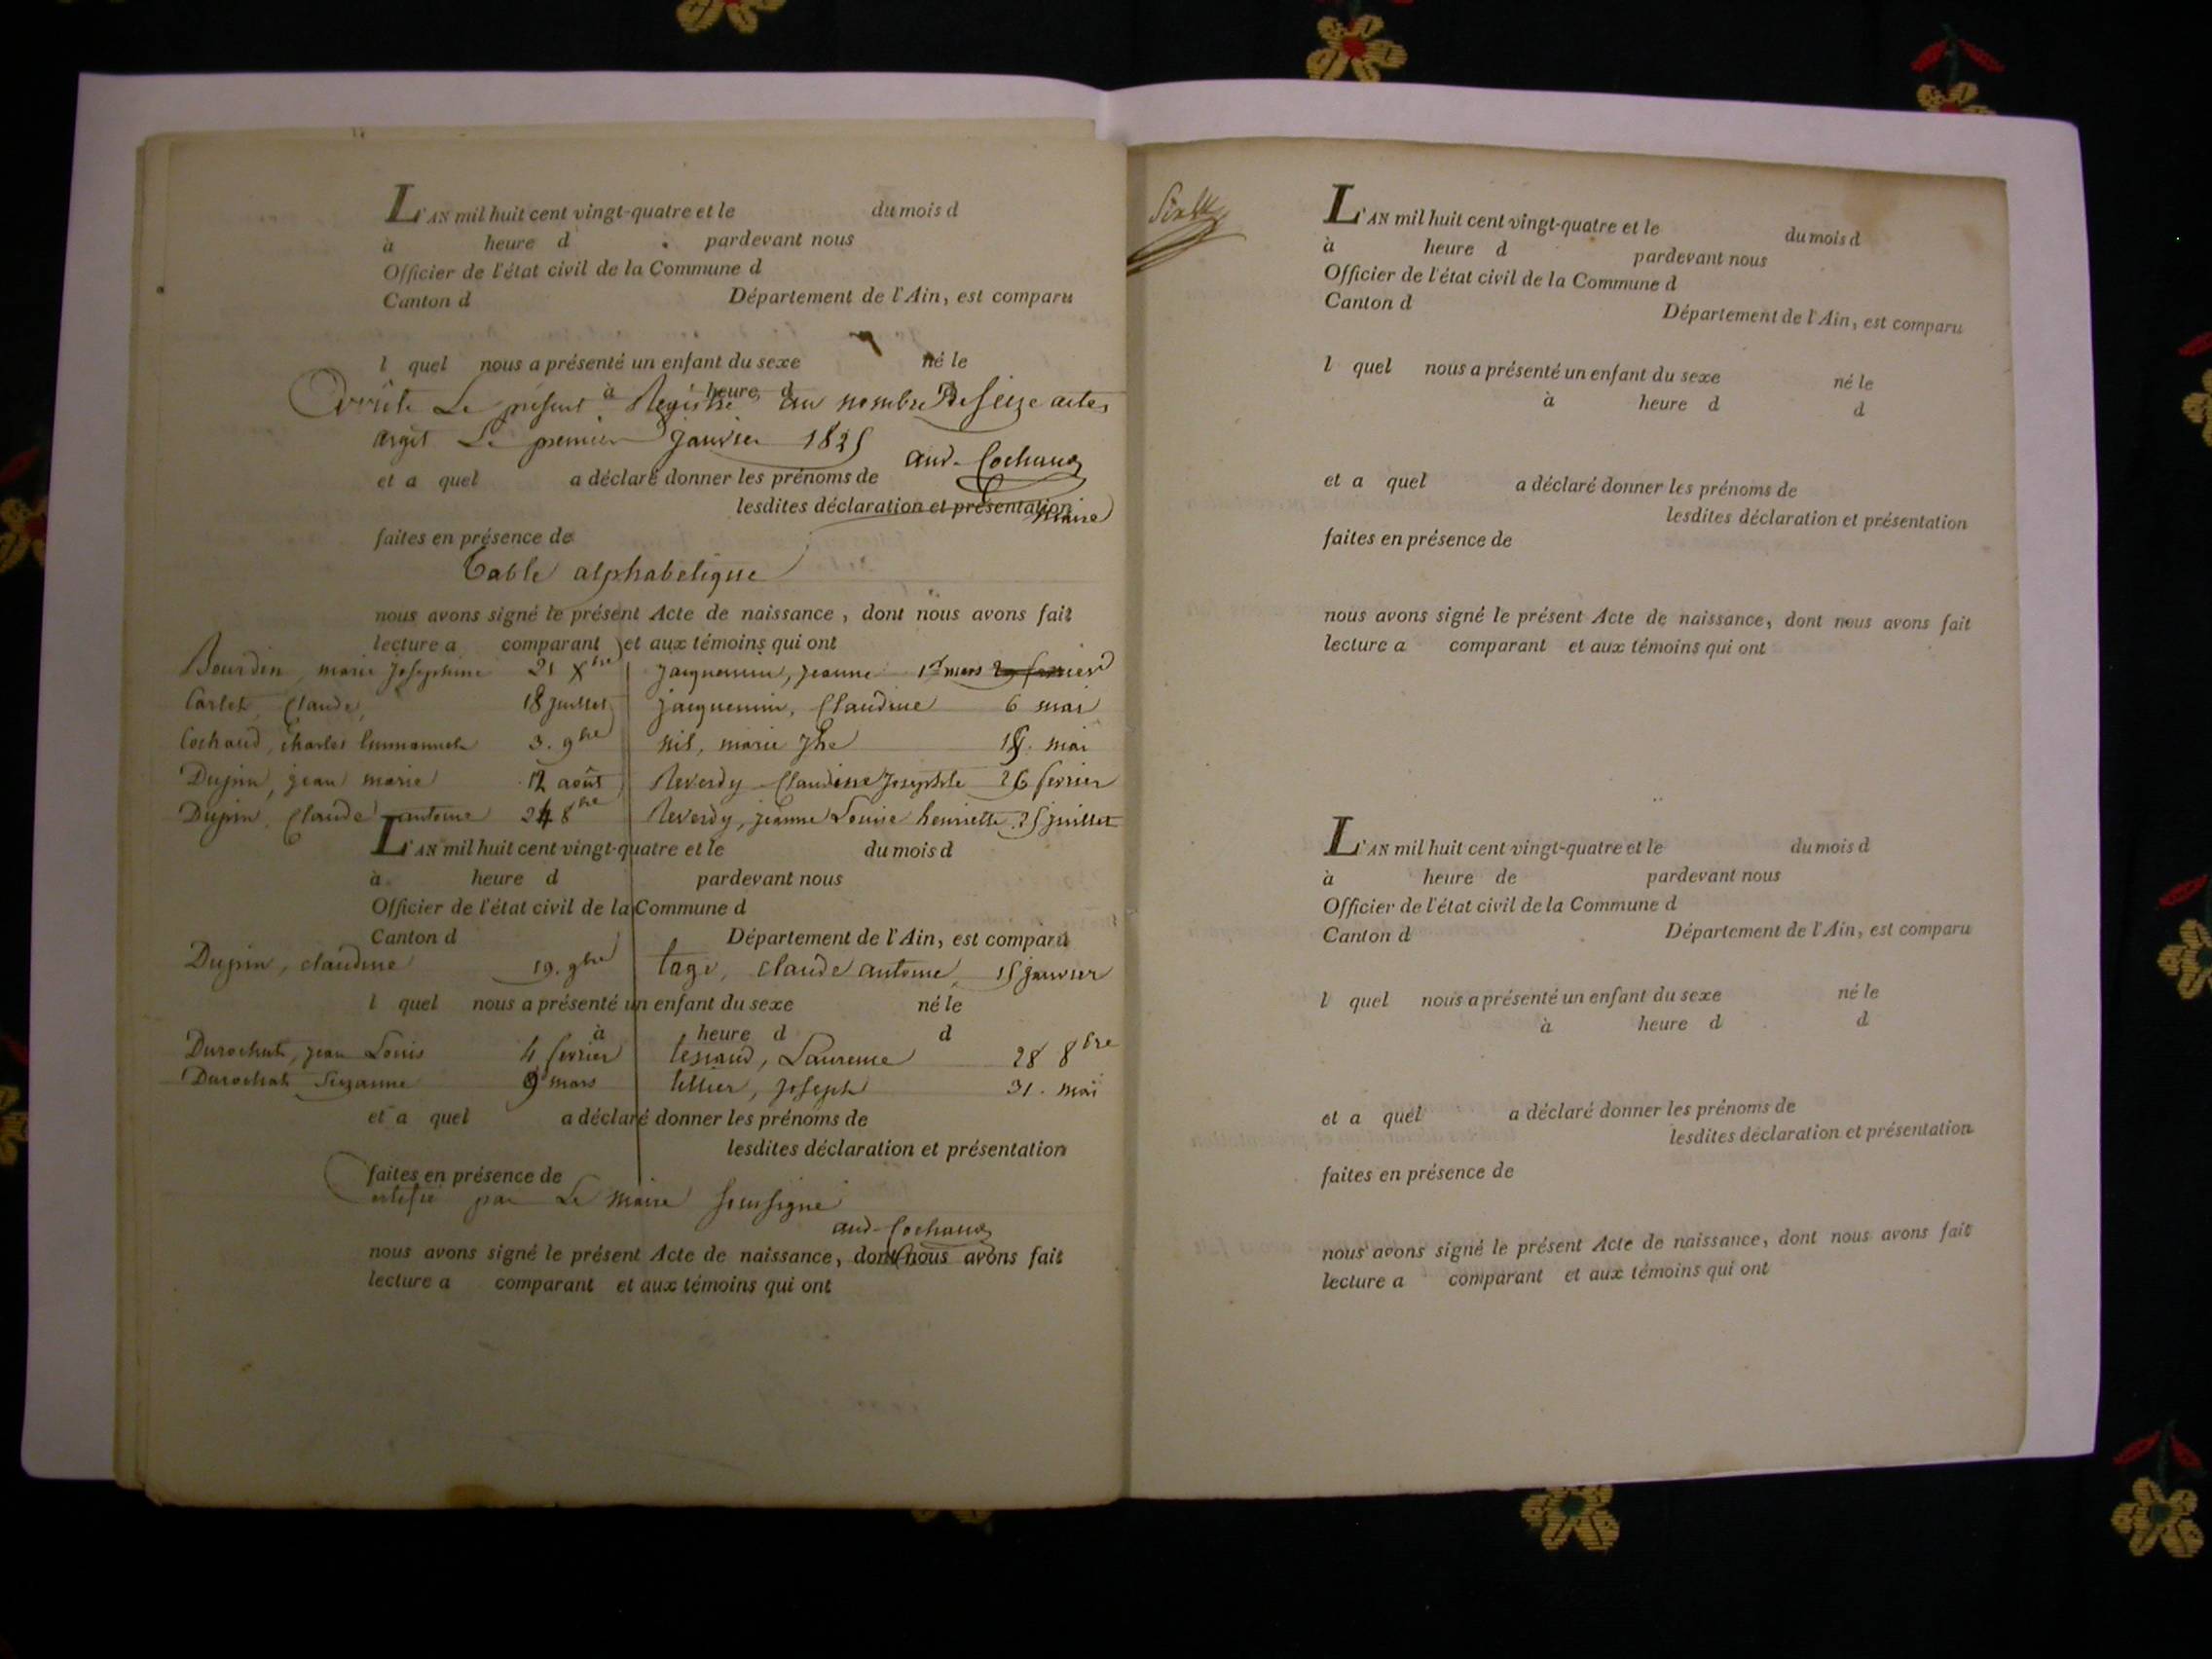 L'AN mil huit cent vingt-quatre et le du mois d
à heure d pardevant nous
Officier de l'état civil de la Commune d
Canton d Département de l'Ain, est comparu
l quel nous a présenté un enfant du sexe né le
à heure d
Le présent Registre au nombre De Seize actes
Le premier Janvier 1825
aud. Cochaud
et a quel a déclaré donner les prénoms de
lesdites déclaration et présentation
maire
faites en présence de
Table alphabetique
nous avons signé le présent Acte de naissance, dont nous avons fait
lecture a comparant et aux témoins qui ont
Bourdin, marie Josephine 21 Xbre Jacquemin, jeanne 1er mars
Carlet, Claude, 18 juillet jacquemin, Claudine 6 mai
Cochaud, charles Emmanuel 3. 9bre nil, marie Jhe mai
Dupin, jean marie 12 août Reverdy Claudine Josephte 26 fevrier
Dupin, Claude antoine 24 8bre Reverdy, jeanne Louise henriette 25 juillet
L'AN mil huit cent vingt-quatre et le du mois d
à heure d pardevant nous
Officier de l'état civil de la Commune d
Canton d Département de l'Ain, est comparu
Dupin, claudine 19. 9bre claude antoine 15 janvier
l quel nous a présenté un enfant du sexe né le
à heure d d
Durochat, jean Louis 4 fevrier Laurence 28 8bre
Durochat Suzanne 9 mars tillier, Joseph 31. mai
et a quel a déclaré donner les prénoms de
lesdites déclaration et présentation
faites en présence de
Certifié par Le maire Soussigné
aud. Cochaud
nous avons signé le présent Acte de naissance, dont nous avons fait
lecture a comparant et aux témoins qui ont
L'AN mil huit cent vingt-quatre et le du mois d
à heure d pardevant nous
Officier de l'état civil de la Commune d
Canton d Département de l'Ain, est comparu
l quel nous a présenté un enfant du sexe né le
à heure d d
et a quel a déclaré donner les prénoms de
lesdites déclaration et présentation
faites en présence de
nous avons signé le présent Acte de naissance, dont nous avons fait
lecture a comparant et aux témoins qui ont
L'AN mil huit cent vingt-quatre et le du mois d
à heure de pardevant nous
Officier de l'état civil de la Commune d
Canton d Département de l'Ain, est comparu
l quel nous a présenté un enfant du sexe né le
à heure d d
et a quel a déclaré donner les prénoms de
lesdites déclaration et présentation
faites en présence de
nous avons signé le présent Acte de naissance, dont nous avons fait
lecture a comparant et aux témoins qui ont